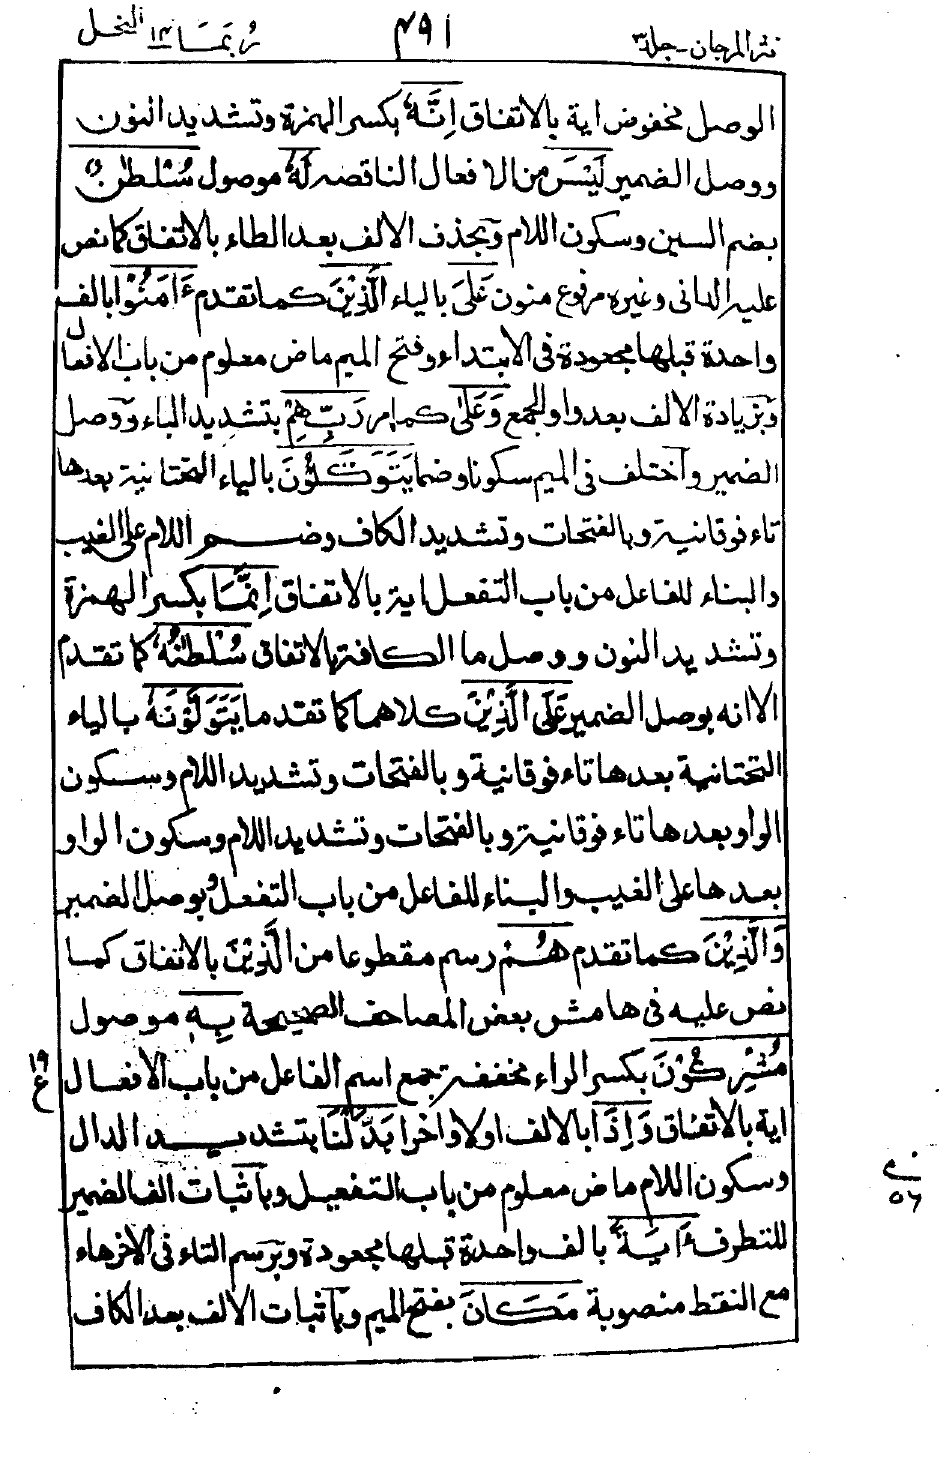 نثر المرجان - جلد ٣
٤٩١
رُبَمَا ١٤ النحل
الوصل مخفوض اية بالاتفاق اِنَّهٗ بكسر الهمزة وتشديد النون
ووصل الضمير لَيْسَ من الافعال الناقصه لَهٗ موصول سُلْطٰنٌ
بضم السين وسكون اللام وبحذف الالف بعد الطاء بالاتفاق كما نص
عليه الدانى وغيره مرفوع منون عَلَى بالياء الَّذِيْنَ كما تقدم ءَامَنُوْا بالف
واحدة قبلها مجعودة فى الابتداء وفتح الميم ماض معلوم من باب الافعال
وبزيادة الالف بعد واو الجمع وَعَلٰى كما مر رَبِّهِمْ بتشديد الباء ووصل
الضمير واختلف فى الميم سكونا وضما يَتَوَكَّلُوْنَ بالياء التحتانية بعدها
تاء فوقانية وبالفتحات وتشديد الكاف وضم اللام على الغيب
والبناء للفاعل من باب التفعل اية بالاتفاق اِنَّمَا بكسر الهمزة
وتشديد النون ووصل ما الكافة بالاتفاق سُلْطٰنُهٗ كما تقدم
الا انه بوصل الضمير عَلَى الَّذِيْنَ كلاهما كما تقدما يَتَوَلَّوْنَهٗ بالياء
التحتانية بعدها تاء فوقانية وبالفتحات وتشديد اللام وسكون
الواو بعدها تاء فوقانية وبالفتحات وتشديد اللام وسكون الواو
بعدها على الغيب والبناء للفاعل من باب التفعل وبوصل الضمير
وَالَّذِيْنَ كما تقدم هُمْ رسم مقطوعا من الَّذِيْنَ بالاتفاق كما
نص عليه فى هامش بعض المصاحف الصحيحة بِهٖ موصول
مُشْرِكُوْنَ بكسر الراء مخففة جمع اسم الفاعل من باب الافعال
١٩
ع
اية بالاتفاق وَاِذَا بالالف اولا واخرا بَدَّلْنَا بتشديد الدال
وسكون اللام ماض معلوم من باب التفعيل وباثبات الف الضمير
٥٦
للتطرف ءَايَةً بالف واحدة قبلها مجعودة وبرسم التاء فى الاخر هاء
مع النقط منصوبة مَكَانَ بفتح الميم وباثبات الالف بعد الكاف